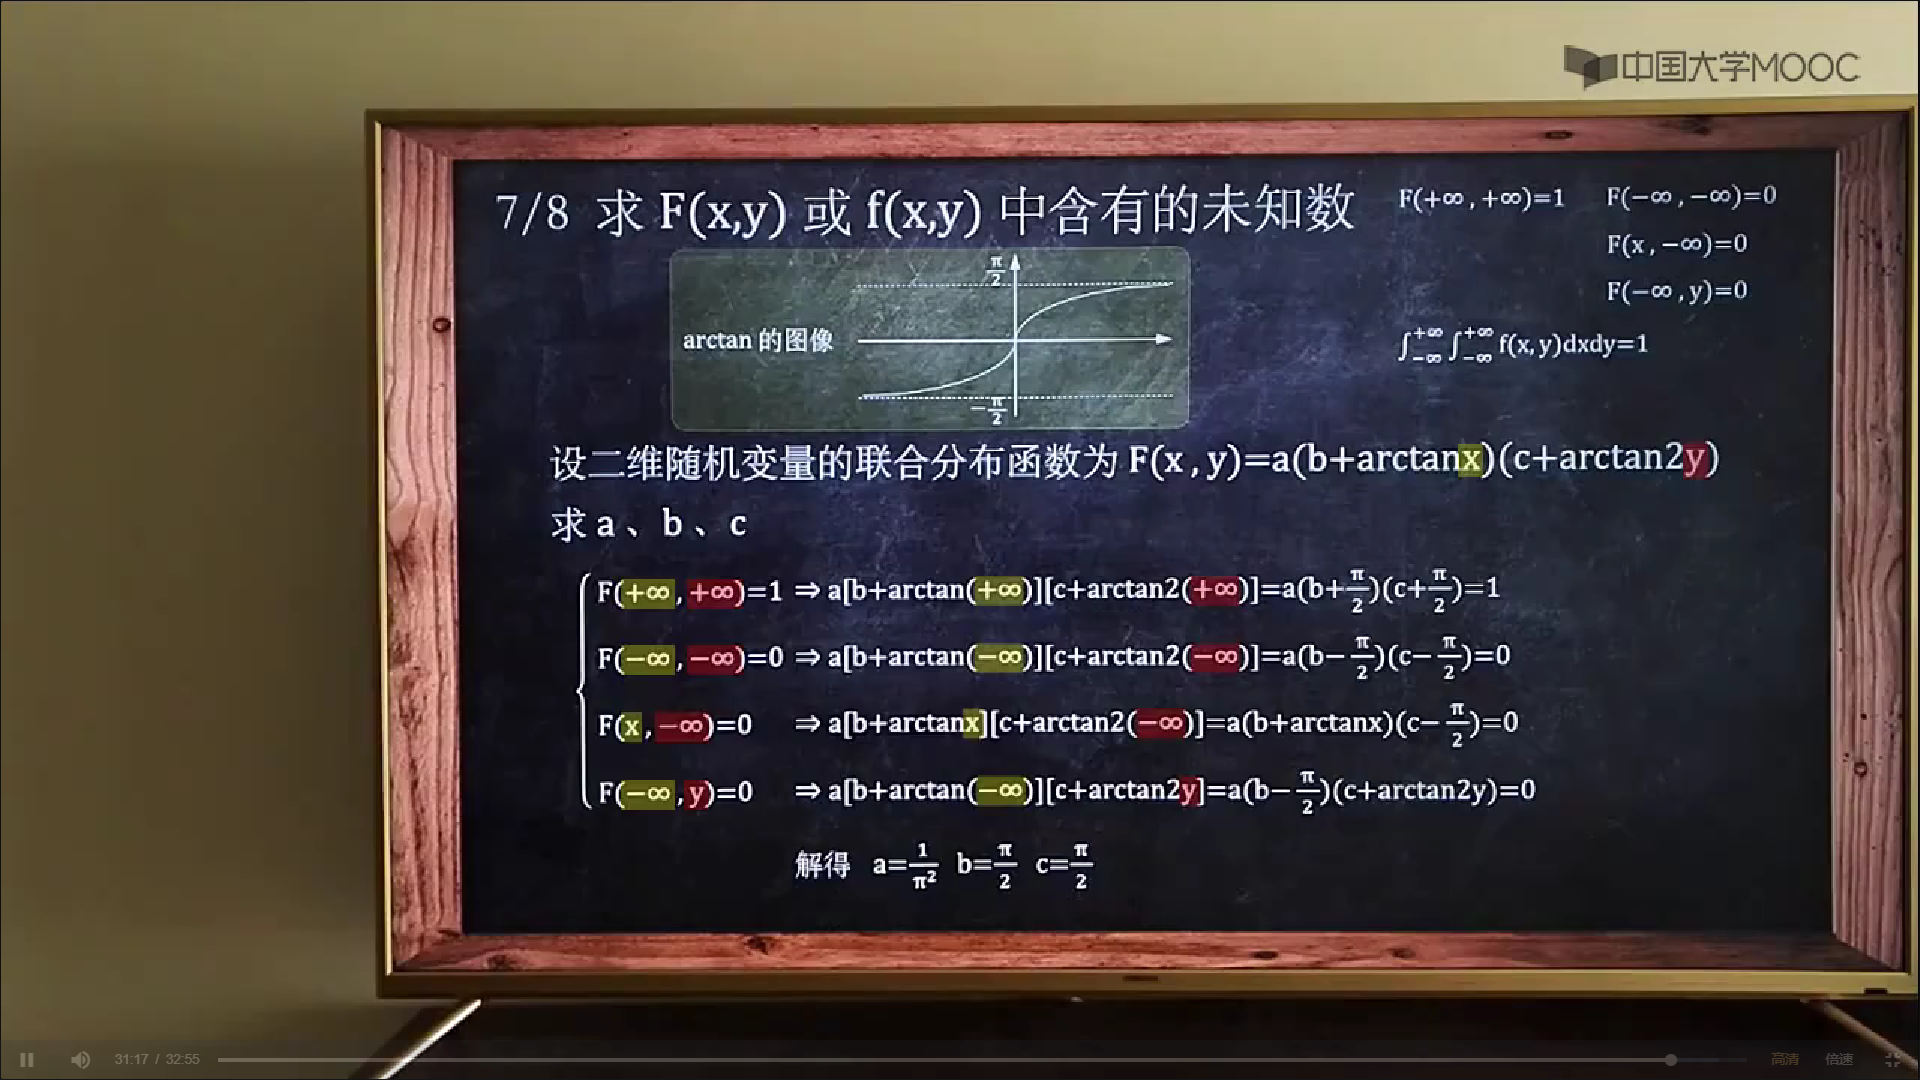 中国大学MOOC
7/8 求 F(x,y) 或 f(x,y) 中含有的未知数
F(+∞,+∞)=1 F(−∞,−∞)=0
F(x,−∞)=0
F(−∞,y)=0
∫₋∞⁺∞ ∫₋∞⁺∞ f(x,y)dxdy=1
π/2
arctan 的图像
−π/2
设二维随机变量的联合分布函数为 F(x,y)=a(b+arctanx)(c+arctan2y)
求 a、b、c
F(+∞,+∞)=1 ⇒ a[b+arctan(+∞)][c+arctan2(+∞)]=a(b+π/2)(c+π/2)=1
F(−∞,−∞)=0 ⇒ a[b+arctan(−∞)][c+arctan2(−∞)]=a(b−π/2)(c−π/2)=0
F(x,−∞)=0 ⇒ a[b+arctanx][c+arctan2(−∞)]=a(b+arctanx)(c−π/2)=0
F(−∞,y)=0 ⇒ a[b+arctan(−∞)][c+arctan2y]=a(b−π/2)(c+arctan2y)=0
解得 a=1/π² b=π/2 c=π/2
31:17 / 32:55 高清 倍速